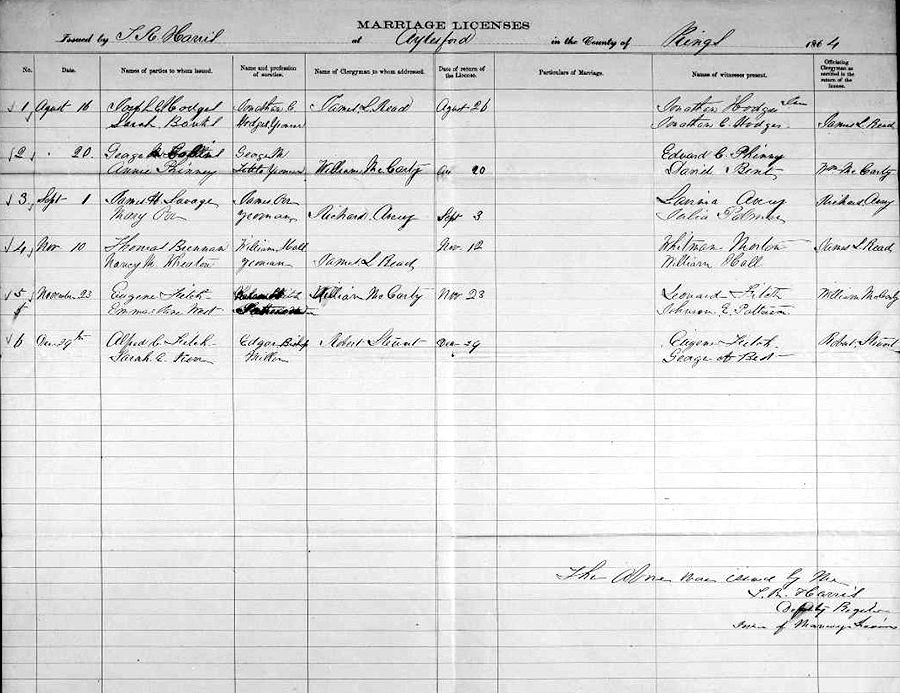 MARRIAGE LICENSES
Issued by S. R. Harris at Aylesford in the County of Kings 1864
No. Date. Names of parties to whom issued. Name and profession of sureties. Name of Clergyman to whom addressed. Date of return of the License. Particulars of Marriage. Names of witnesses present. Officiating Clergyman as certified in the return of the license.
1 August 16 Joseph Hodges Jonathan C. James L. Read August 26 Jonathan Hodges
Sarah Banks Hodges Yeoman Jonathan C. Hodges James L. Read
2 " 20 George George M Edward C. Phinny
Annie Phinney Yeoman William McCarty 20 David Bent Wm McCarty
3 Sept 1 James H. Savage James Orr Lavinia Avery Richard Avery
Mary Orr yeoman Richard Avery Sept 3 Julia Palmer
4 Nov 10 Thomas Brennan William Hall Nov 12 Whitman Morton James L. Read
Nancy M. yeoman James L. Read William Hall
5 November 23 Eugene Fitch William McCarty Nov 23 Leonard Fitch William McCarty
Emma Jane West Johnson E. Patterson
6 Dec 29th Alfred C. Fitch Edgar Bishop Robert Stuart Dec 29 Eugene Fitch Robert Stuart
Sarah E. George A. Best
The above was issued by me
S. R. Harris
Deputy Register
Issuer of Marriage Licenses